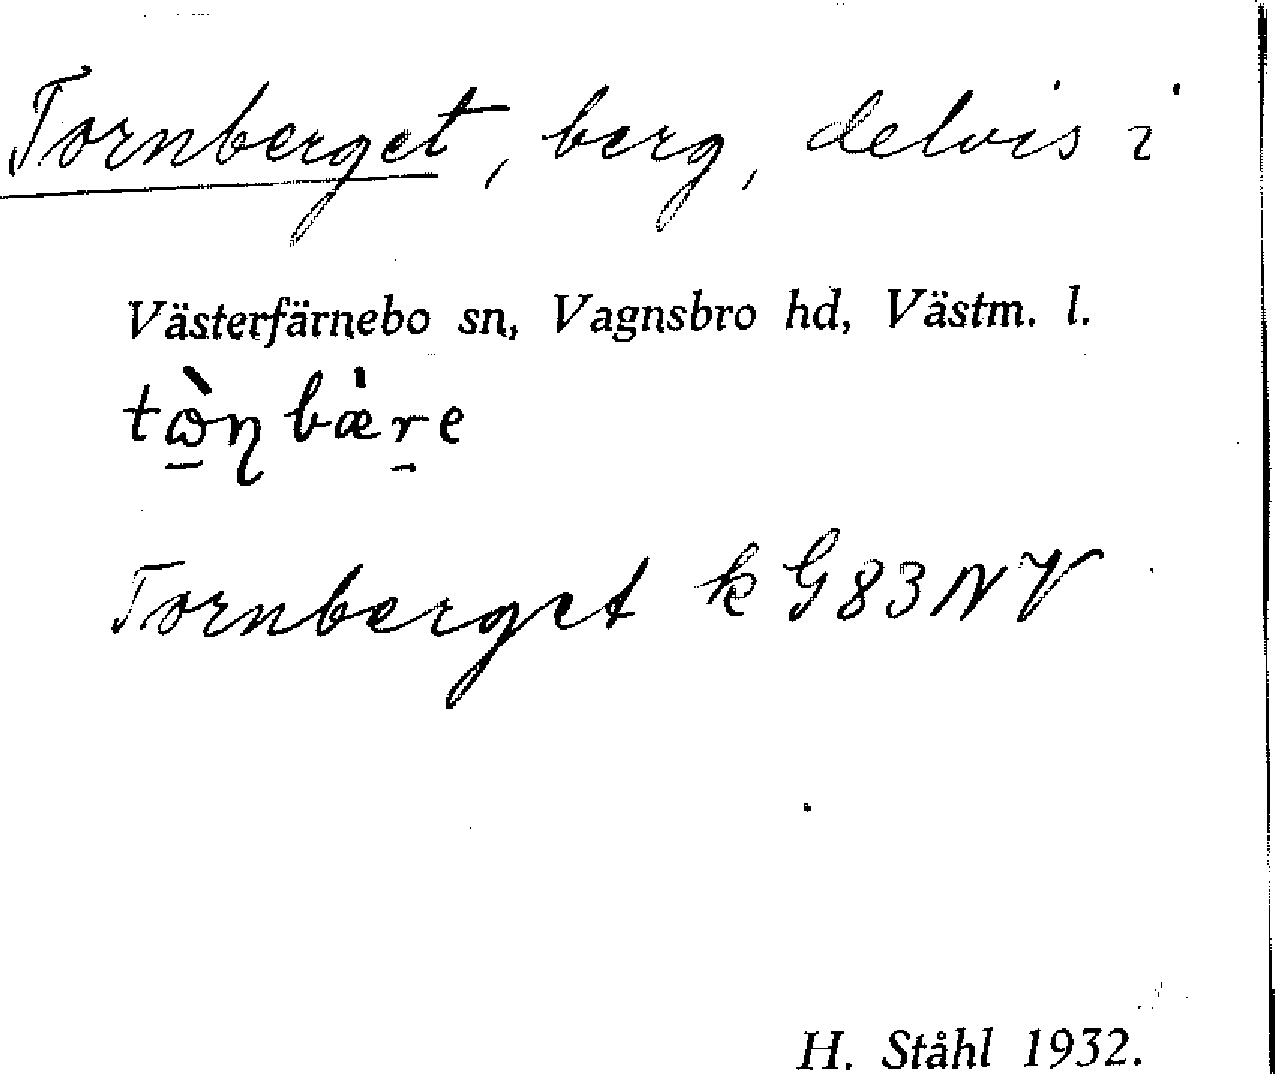 Tornberget, berg, delvis i
Västerfärnebo sn, Vagnsbro hd, Västm. l.
tꞷ̠̀ɳ bæ̀r̠e
Tornberget k G 83 NV
H. Ståhl 1932.